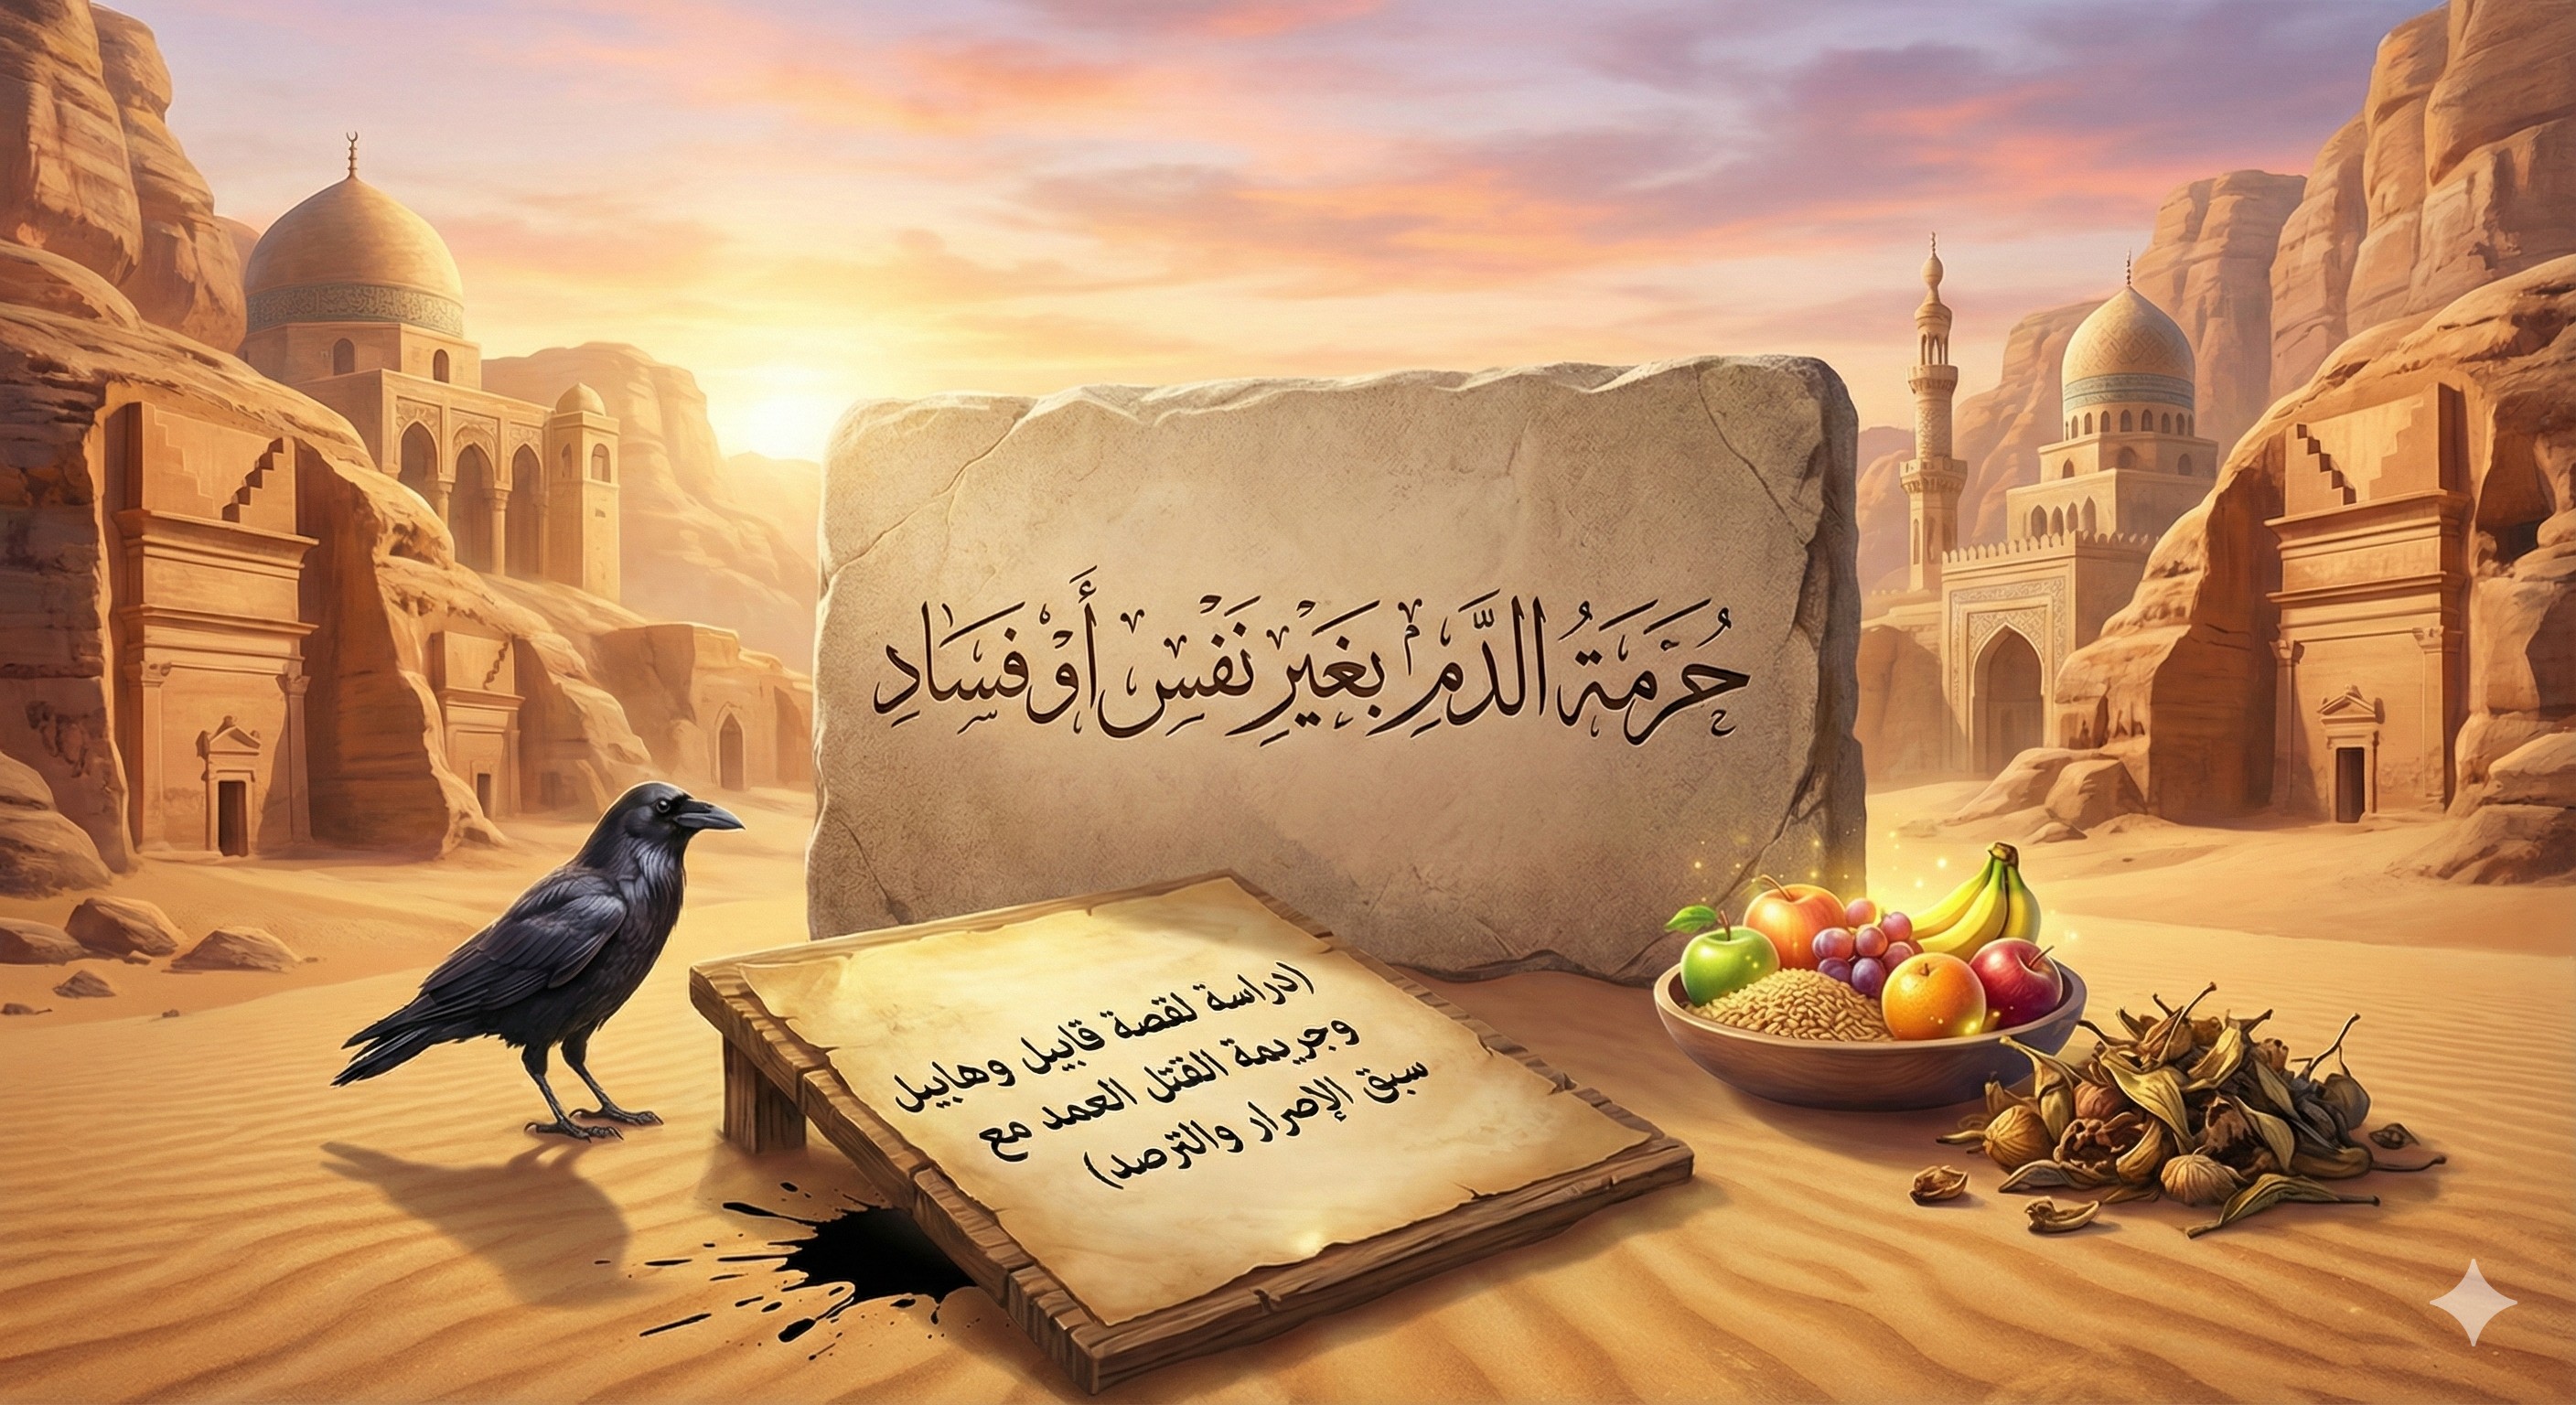 حُرْمَةُ الدَّمِ بِغَيْرِ نَفْسٍ أَوْ فَسَادٍ
(دراسة لقصة قابيل وهابيل
وجريمة القتل العمد مع
سبق الإصرار والترصد)